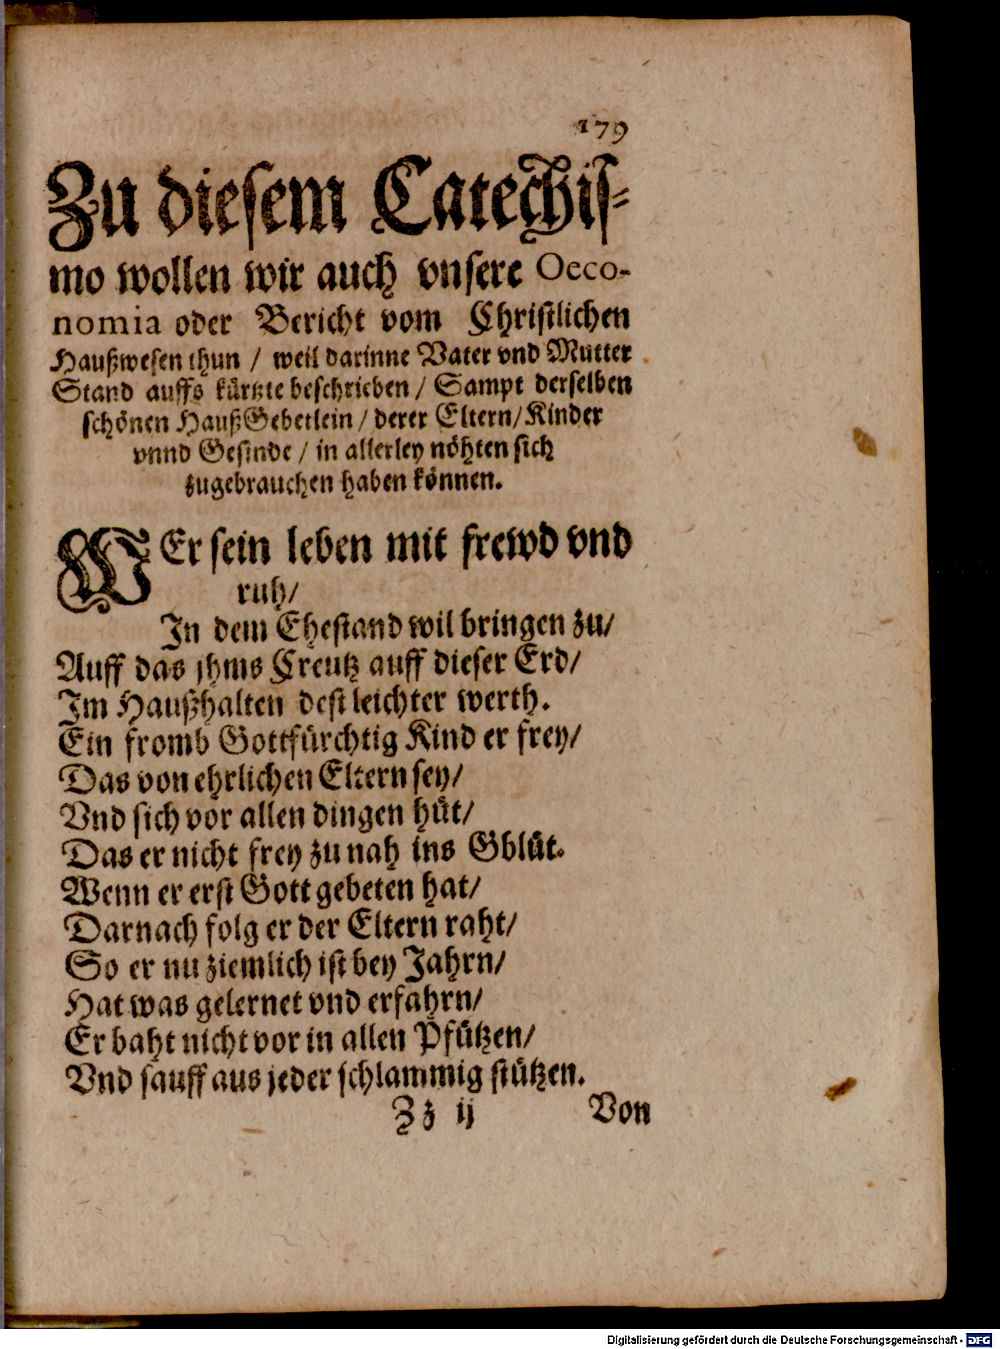 179
Zu diesem Catechis-
mo wollen wir auch vnsere Oeco-
nomia oder Bericht vom Christlichen
Haußwesen thun / weil darinne Vater vnd Mutter
Stand auffs kürtzte beschrieben / Sampt derselben
schönen HaußGebetlein / derer Eltern / Kinder
vnnd Gesinde / in allerley nöhten sich
zugebrauchen haben können.
WEr sein leben mit frewd vnd
ruh /
In dem Ehestand wil bringen zu /
Auff das jhms Creutz auff dieser Erd /
Im Haußhalten dest leichter werth.
Ein fromb Gottfürchtig Kind er frey /
Das von ehrlichen Eltern sey /
Vnd sich vor allen dingen hüt /
Das er nicht frey zu nah ins Gblüt.
Wenn er erst Gott gebeten hat /
Darnach folg er der Eltern raht /
So er nu ziemlich ist bey Jahrn /
Hat was gelernet vnd erfahrn /
Er baht nicht vor in allen Pfützen /
Vnd sauff aus jeder schlammig stützen.
Zz ij Von
Digitalisierung gefördert durch die Deutsche Forschungsgemeinschaft - DFG